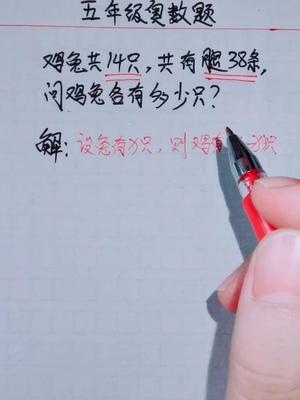 五年级奥数题
鸡兔共14只,共有腿38条,
问鸡兔各有多少只?
解:设兔有x只,则鸡有 只